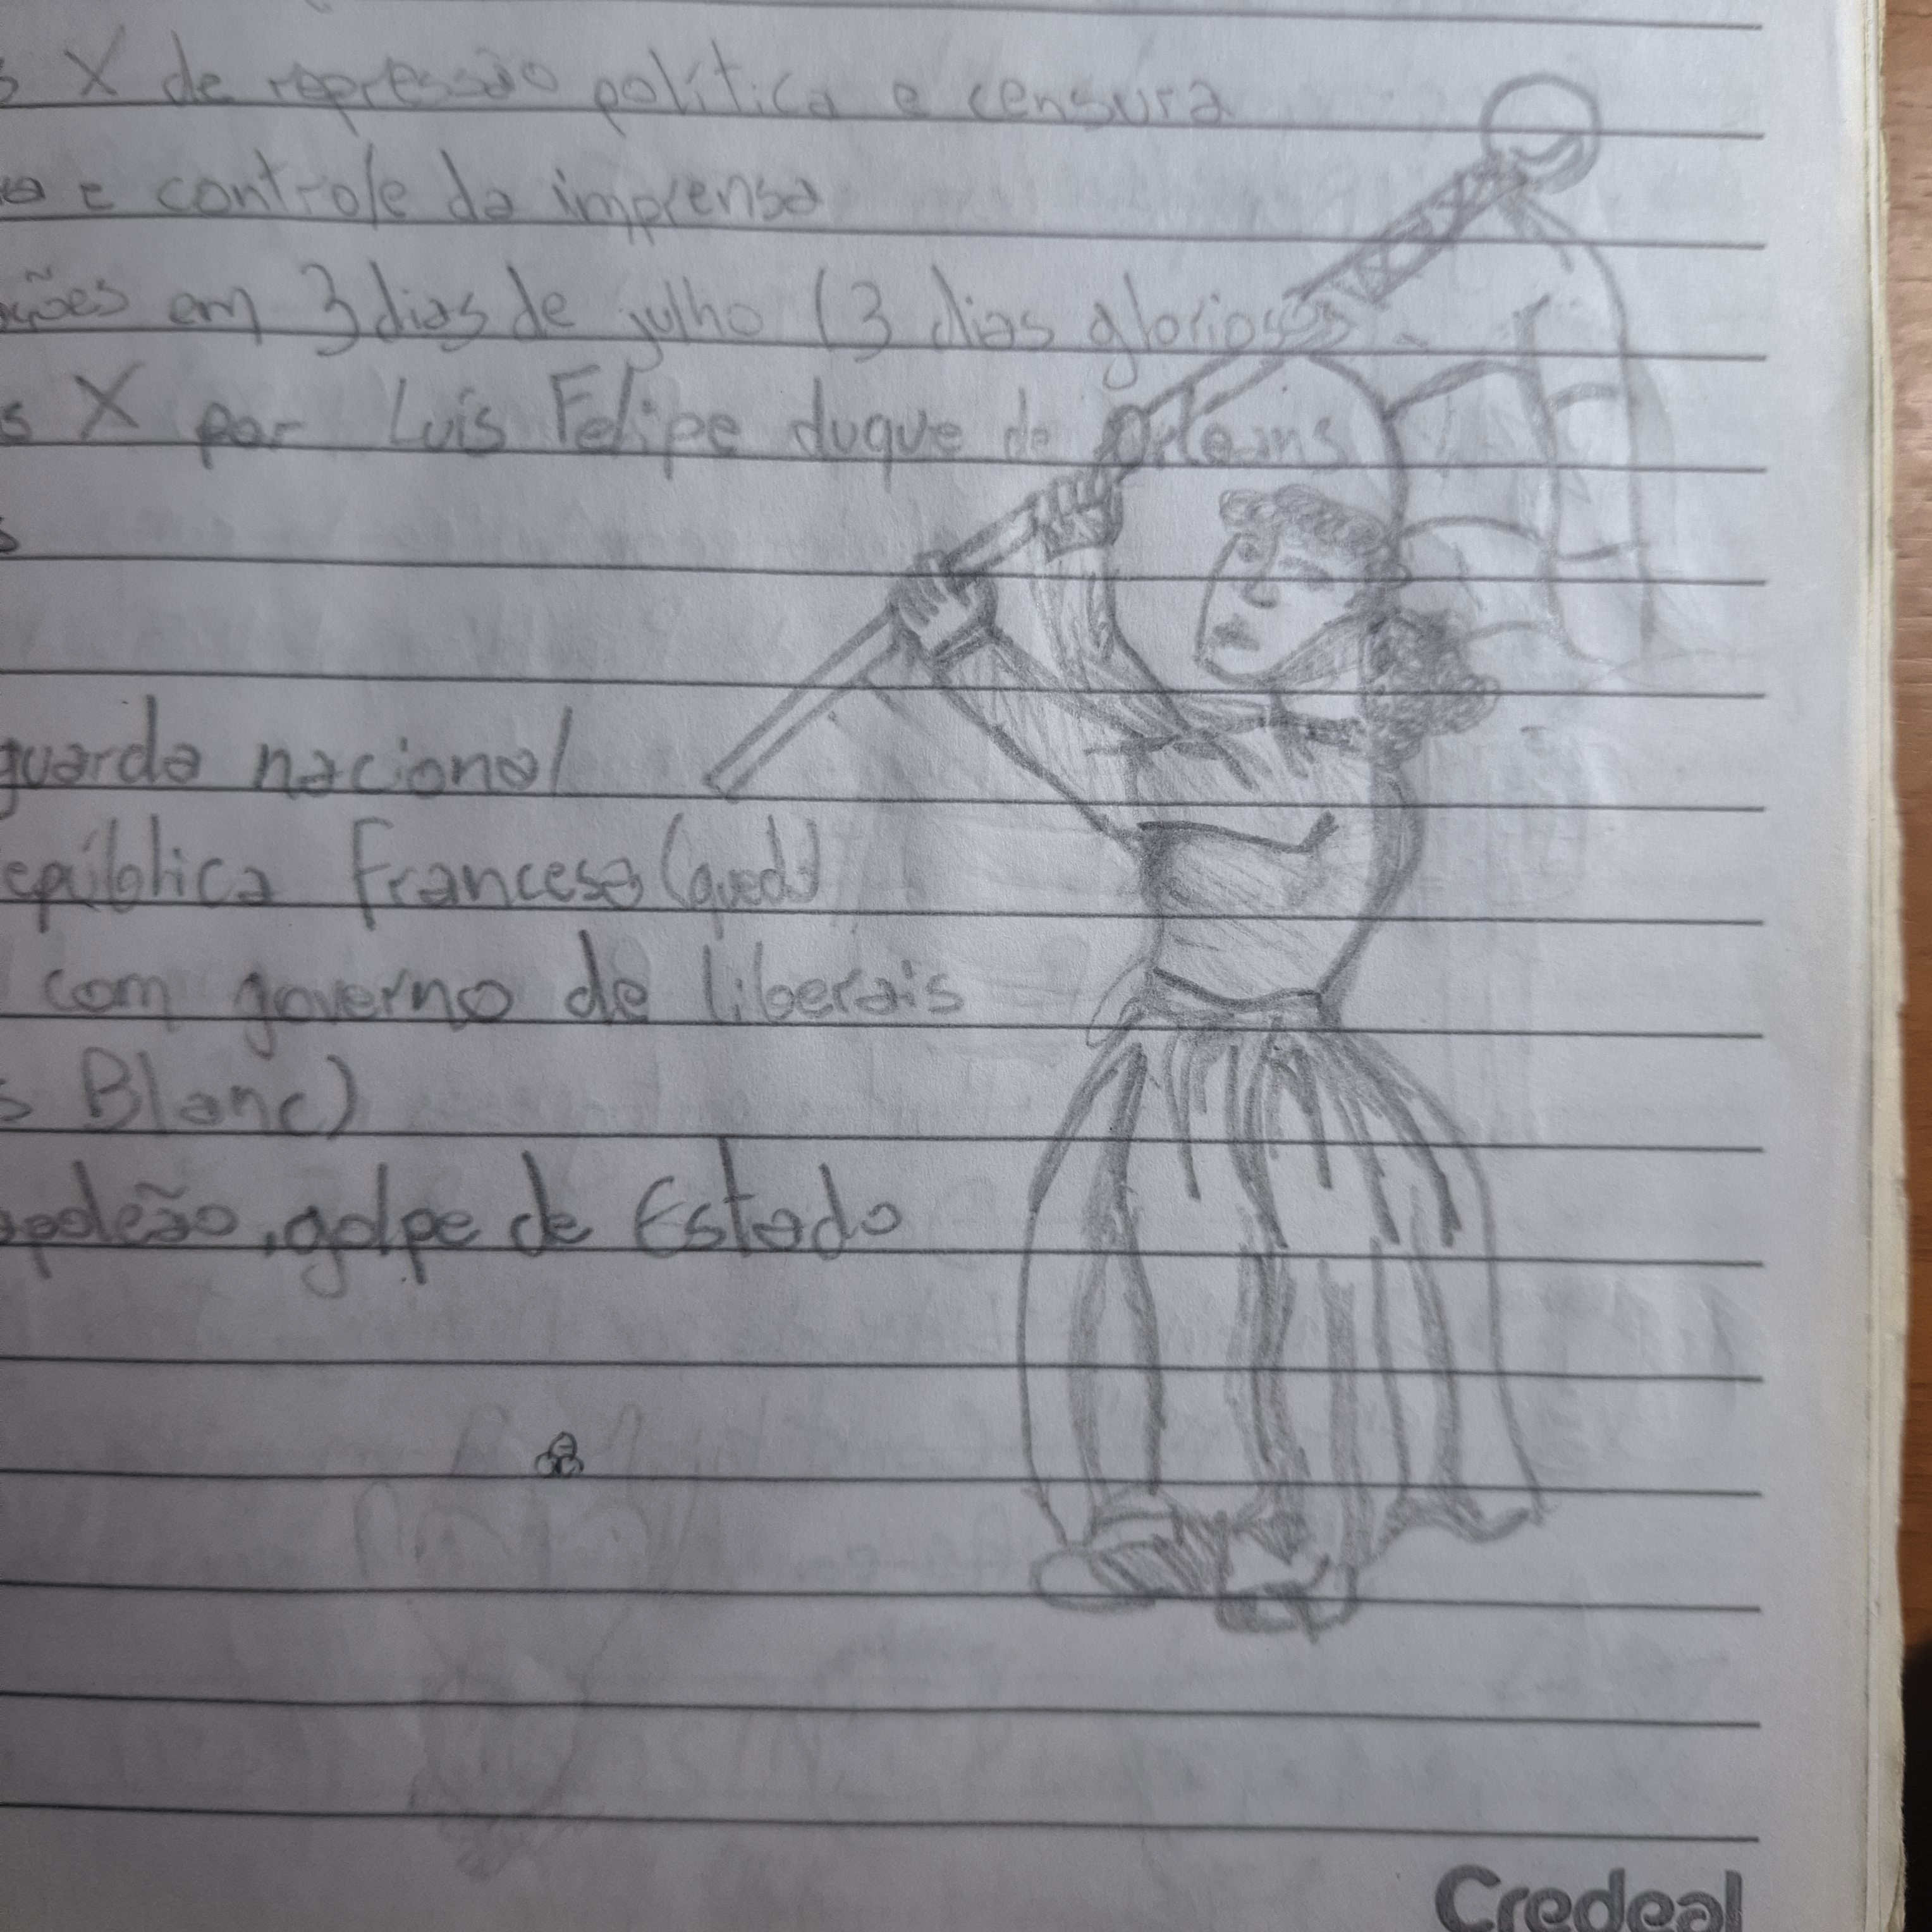 s X de repressão política e censura
e controle da imprensa
ações em 3 dias de julho (3 dias gloriosos
s X por Luís Felipe duque de Orleans
s
guarda nacional
epública Francesa (queda)
com governo de liberais
s Blanc)
apoleão, golpe de Estado
Credeal